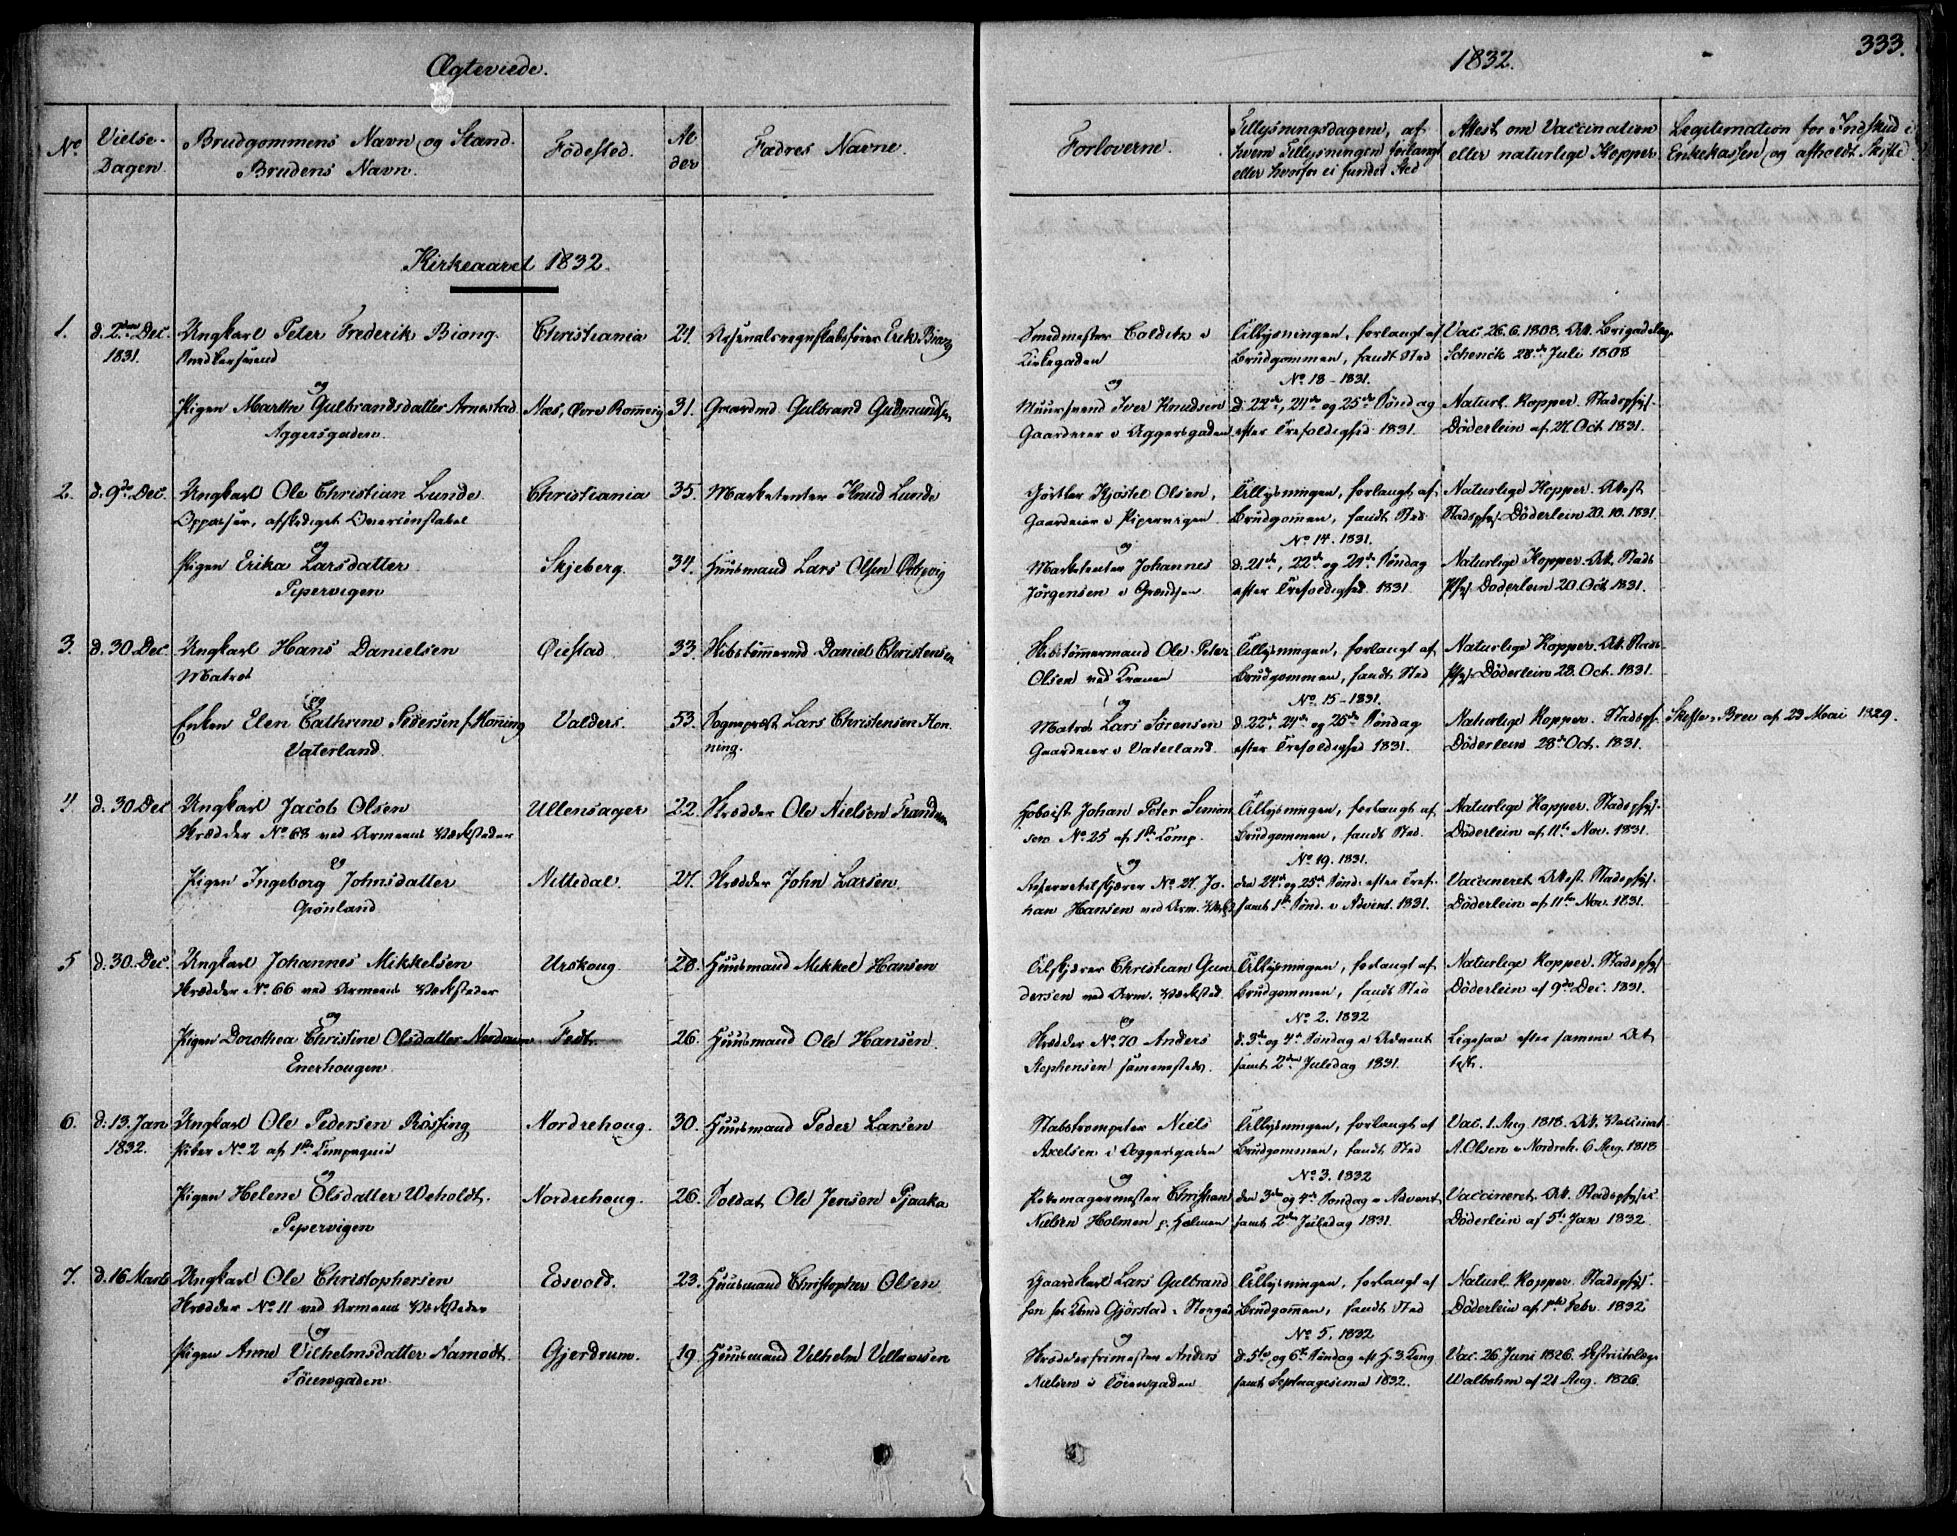 Ægteviede.
1832.
333.
No.
Vielse-
Dagen.
Brudgommens Navn og Stand.
Brudens Navn.
Fødested.
Al
der
Fædres Navne.
Forloverne.
Tillysningsdagene, af
hvem Tillysningen forlangt
eller hvorfor ei fundet Sted
Attest om Vaccination
eller naturlige Kopper
Legitimation for Indskud i
Enkekassen og afholdt Skifte
Kirkeaaret 1832.
1. d. 2den Dec. Ungkarl Peter Frederik Biong. Christiania 24. Arsenalsregnskabsfører Erik Biong
1831. Snedkersvend
og
Pigen Marthe Gulbrandsdatter Arnestad Næs, Øvre Romerig 31. Gaardmd Gulbrand Gudmundsen
Aggersgaden.
Smedmester Colditz i Tillysningen, forlangt af Vac. 26.6.1808. Att. Brigadelæge
Kirkegaden Brudgommen, fandt Sted Schenck 28de Juli 1808
og No 18-1831.
Muursvend Iver Knudsen d. 22de, 24de og 25de Søndag Naturl. Kopper. Stadsphys.
Gaardeier i Aggersgaden efter Trefoldighed 1831. Döderlein af 27. Oct. 1831.
2. d. 9de Dec. Ungkarl Ole Christian Lunde Christiania 35. Marketenter Knud Lunde
Oppasser, afskediget Overconstabel
og
Pigen Erika Larsdatter Skjeberg. 34. Huusmand Lars Olsen
Pipervigen
Gjörtler Kjöstel Olsen, Tillysningen, forlangt af Naturlige Kopper. Attest
Gaardeier i Pipervigen Brudgommen, fandt Sted Stadsphys. Döderlein 20.10.1831.
og No 14. 1831.
Marketenter Johannes d. 21de, 22de og 24de Søndag Naturlige Kopper. Att. Stads
Jörgensen i Grændsen efter Trefoldighed 1831. Phys. Döderlein 20. Oct. 1831.
3. d. 30 Dec. Ungkarl Hans Danielsen Øiestad 33. Skibstömmermd Daniel Christensen
Matros
og
Enken Elen Cathrine Pedersen f. Honing Valders. 53. Sognepræst Lars Christensen Hon
Vaterland ning.
Skibstömmermand Ole Peter Tillysningen, forlangt af Naturlige Kopper. Att. Stads-
Olsen ved Kranen Brudgommen, fandt Sted Phys. Döderlein 28. Oct. 1831.
og No 15-1831.
Matros Lars Sörensen d. 22de, 24de og 25de Søndag Naturlige Kopper. Stadsph. Skifte-Brev af 23 Mai 1829.
Gaardeier i Vaterland efter Trefoldighed 1831. Döderlein 28de Oct. 1831.
4. d. 30 Dec Ungkarl Jacob Olsen Ullensager 22. Skrædder Ole Nielsen
Skrædder No 68 ved Armeens Værksteder
og
Pigen Ingeborg Johnsdatter Nittedal. 27. Skrædder John Larsen
Grönland
Hoboist Johan Peter Simon Tillysningen, forlangt af Naturlige Kopper. Stadsphys.
sen No 25 af 1ste Comp. Brudgommen, fandt Sted. Döderlein af 11te Nov. 1831.
og No 19. 1831.
No 27. Jo- den 24de og 25de Sönd. efter Tref. Vaccineret Attest Stadsphys.
han Hansen ved Arm. Værksd. samt 1ste Sönd. i Advent. 1831. Döderlein af 11te Nov. 1831.
5 d. 30. Dec. Ungkarl Johannes Mikkelsen Urskoug. 28. Huusmand Mikkel Hansen
Skrædder No 66 ved Armeens Værksteder
og
Pigen Dorothea Christine Olsdatter Fedt. 26. Huusmand Ole Hansen.
Enerhougen.
Tilskjærer Christian Gun Tillysningen, forlangt af Naturlige Kopper. Stadsphys.
dersen ved Arm. Værksted Brudgommen, fandt Sted Döderlein af 9de Dec. 1831.
og No 2. 1832
Skrædder No 70 Anders d. 3de og 4de Søndag i Advent Ligesaa efter samme At
Stephensen sammesteds. samt 2den Juledag 1831. test.
6. d. 13. Jan Ungkarl Ole Pedersen Rösfing Nordrehoug. 30. Huusmand Peder Larsen
1832. Piber No 2 af 1ste Compagnie
og
Pigen Helene Olsdatter Weholdt. Nordrehoug. 26. Soldat Ole Jensen Pjaaka
Pipervigen
Stabstrompeter Niels Tillysningen, forlangt af Vac. 1. Aug 1818. Att. Vaccinat.
Axelsen i Aggersgaden Brudgommen, fandt Sted A. Olsen i Nordreh. 6 Aug. 1818
og No 3. 1832
Parykmagermester Christian den 3de og 4de Søndag i Advent Vaccineret. Att. Stadsphysic.
Nielsen Holmen p. Holmen samt 2den Juledag 1831. Döderlein af 5te Jan 1832.
7. d. 16 Marts Ungkarl Ole Christophersen Edsvold. 23. Huusmand Christopher Olsen
Skrædder No 11 ved Armeens Værksteder
og
Pigen Anne Vilhelmsdatter Namodt. Gjerdrum. 19 Huusmand Vilhelm Villumsen
Töiengaden.
Gaardskarl Lars Gulbrand Tillysningen, forlangt af Naturl. Kopper. Stadsphys.
sen hos Kbmd Gjörstad i Storgad. Brudgommen, fandt Sted Döderlein af 1ste Febr. 1832
og No 5. 1832
Skrædderfrimester Anders d. 5te og 6te Søndag eft. H. 3 Kong Vac. 26 Juni 1826. Distriktslæge
Nielsen i Töiengaden samt Septuagesima 1832. Walbohm af 21 Aug. 1826.